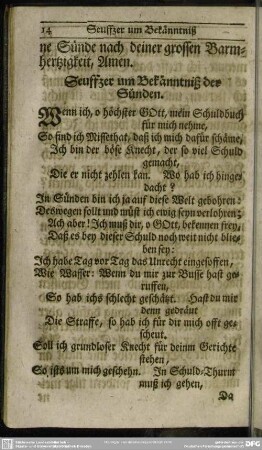 14 Seuffzer um Bekänntniß
ne Sünde nach deiner grossen Barm-
hertzigkeit, Amen.
Seuffzer um Bekänntniß der
Sünden.
Wenn ich, o höchster GOtt, mein Schuldbuch
für mich nehme,
So find ich Missethat, daß ich mich dafür schäme,
Ich bin der böse Knecht, der so viel Schuld
gemacht,
Die er nicht zehlen kan. Wo hab ich hinge-
dacht?
In Sünden bin ich ja auf diese Welt gebohren:
Deswegen sollt und müst ich ewig seyn verlohren;
Ach aber! Ich muß dir, o GOtt, bekennen frey,
Daß es bey dieser Schuld noch weit nicht blie-
hen sey:
Ich habe Tag vor Tag das Unrecht eingesoffen,
Wie Wasser: Wenn du mir zur Busse hast ge-
ruffen,
So hab ichs schlecht geschätzt. Hast du mir
denn gedräut
Die Straffe, so hab ich für dir mich offt ge-
scheut.
Soll ich grundloser Knecht für deinm Gerichte
stehen,
So ists um mich geschehn. In Schuld-Thurm
muß ich gehen,
Da